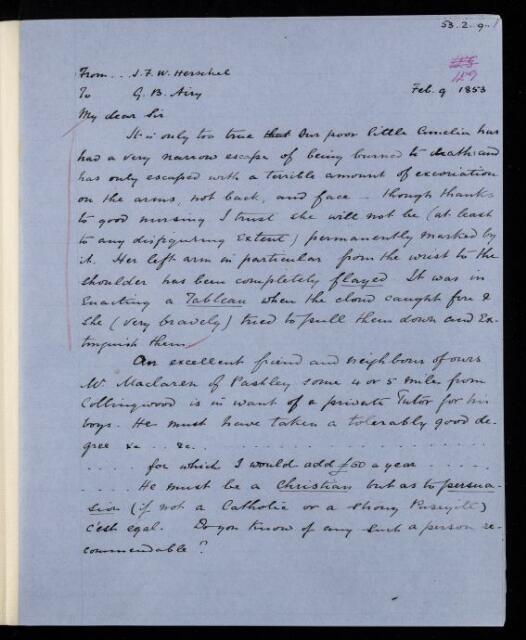 53. 2. 9. 1
129
From .. J. F. W. Herschel
To G. B. Airy Feb. 9 1853
My dear Sir
It is only too true that our poor little Amelia has
had a very narrow escape of being burned to death and
has only escaped with a terrible amount of excoriation
on the arms, not back, and face – though thanks
to good nursing I trust she will not be (at least
to any disfiguring extent) permanently marked by
it. Her left arm in particular from the wrist to the
shoulder has been completely flayed. It was in
enacting a Tableau when the cloud caught fire &
she (very bravely) tried to pull them down and ex-
tinguish them.
An excellent friend and neighbour of ours
Mr Maclaren of Pashley some 4 or 5 miles from
Collingwood is in want of a private Tutor for his
boys. He must have taken a tolerably good de-
gree &c .. &c. . . . . . . . . . . . . . . . . .
. . . . . for which I would add £50 a year . . . . .
. . . . He must be a Christian but as to persua-
sion (if not a Catholic or a strong Puseyite)
c'est egal. Do you know of any such a person re-
commendable?